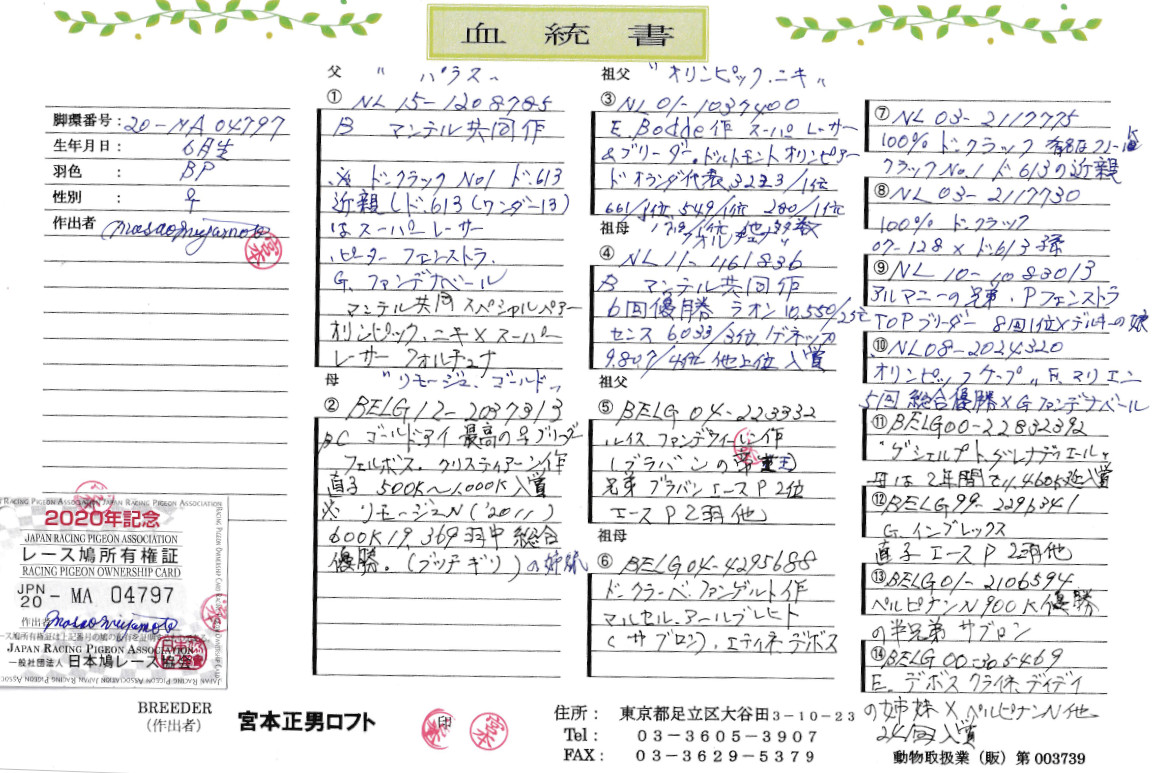 血統書
脚環番号：20-MA 04797
生年月日： 6月生
羽色 ： BP
性別 ： ♀
作出者 masao miyamoto
宮本
父 〝パラス〟
① NL 15-1208785
B マンテル共同作
※ ドンクラック No1 ド.613
近親（ド.613（ワンダー13）
はスーパーレーサー
ピーター フェンストラ.
G. ファンデナベール
マンテル共同 スペシャルペアー
オリンピック.ニキ×スーパー
レーサー フォルチュナ
母 〝リモージュ.ゴールド〟
② BELG 12-2037313
BC ゴールドアイ 最高の♀ブリーダー
フェルボス.クリスティアーン作
直子 500K〜1,000K入賞
※ リモージュN（'2011）
600K19,369羽中 総合
優勝.（ブッチギリ）の姉妹
祖父 〝オリンピック.ニキ〟
③ NL 01-1037400
E. Bodde作 スーパーレーサー
&ブリーダー.ドルトモント オリンピアー
ド オランダ代表 3223/1位
661/1位 549/1位 280/1位
祖母
④ NL 11-1161836
B マンテル共同作
6回優勝 ラオン 10,550/25位
センス 6033/3位
9.807/4位 他上位入賞
祖父
⑤ BELG 04-223332
ルイス.ファンデウィーレン作
（ブラバンの帝王）
兄弟 ブラバンエースP2位
エースP 2羽他
祖母
⑥ BELG 04-4295688
ドンクラーベ.ファンゲルト作
マルセル.アールブレヒト
（サブロン）.エティネ.デボス
⑦ NL 03-2117775
100% ドンクラック
クラックNo.1 ド613の近親
⑧ NL 03-2117730
100% ドンクラック
07-128 × ド613 孫
⑨ NL 10-1083013
アルマニーの兄弟.Pフェンストラ
TOPブリーダー 8回1位×デルキーの娘
⑩ NL08-2024320
オリンピックケープ〟E.マリエン
5回 総合優勝×Gファンデナベール
⑪ BELG00-22832392
母は2年間で11,460K迄入賞
⑫ BELG 99-2296341
G. インブレックス
直子 エースP 2羽他
⑬ BELG 01-2106594
ペルピナンN900K優勝
の半兄弟 サブロン
⑭ BELG 00-305469
E. デボス クライネ.ディディ
の姉妹×ペルピナンN他
24回入賞
2020年記念
JAPAN RACING PIGEON ASSOCIATION
レース鳩所有権証
RACING PIGEON OWNERSHIP CARD
JPN
20 - MA 04797
作出者 masao miyamoto
JAPAN RACING PIGEON ASSOCIATION
一般社団法人 日本鳩レース協会
BREEDER
（作出者）
宮本正男ロフト
印
住所： 東京都足立区大谷田3-10-23
Tel： 03-3605-3907
FAX： 03-3629-5379
動物取扱業（販）第 003739